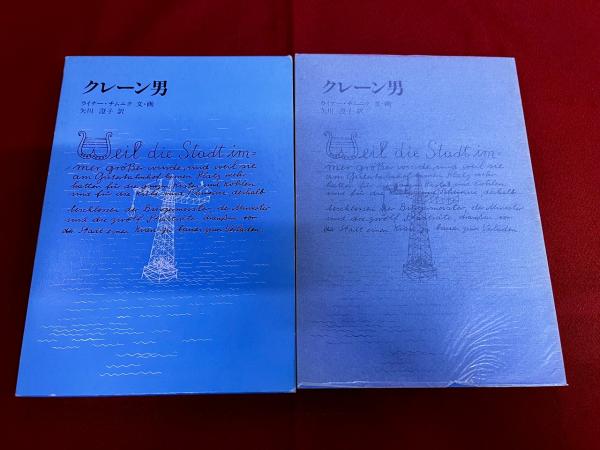 クレーン男
ライナー・チムニク 文・画
矢川 澄子 訳
Weil die Stadt im=
mer größer wurde, und weil sie
am Güterbahnhof keinen Platz mehr
hatten für die
und für die deshalb
beschlossen der Bürgermeister, die Minister
und die zwölf Stadträte, draußen vor
der Stadt einen Kran zu bauen zum Verladen
クレーン男
ライナー・チムニク 文・画
矢川 澄子 訳
Weil die Stadt im=
mer größer wurde, und weil sie
am Güterbahnhof keinen Platz mehr
hatten für die
und für die deshalb
beschlossen der Bürgermeister, die Minister
und die zwölf Stadträte, draußen vor
der Stadt einen Kran zu bauen zum Verladen